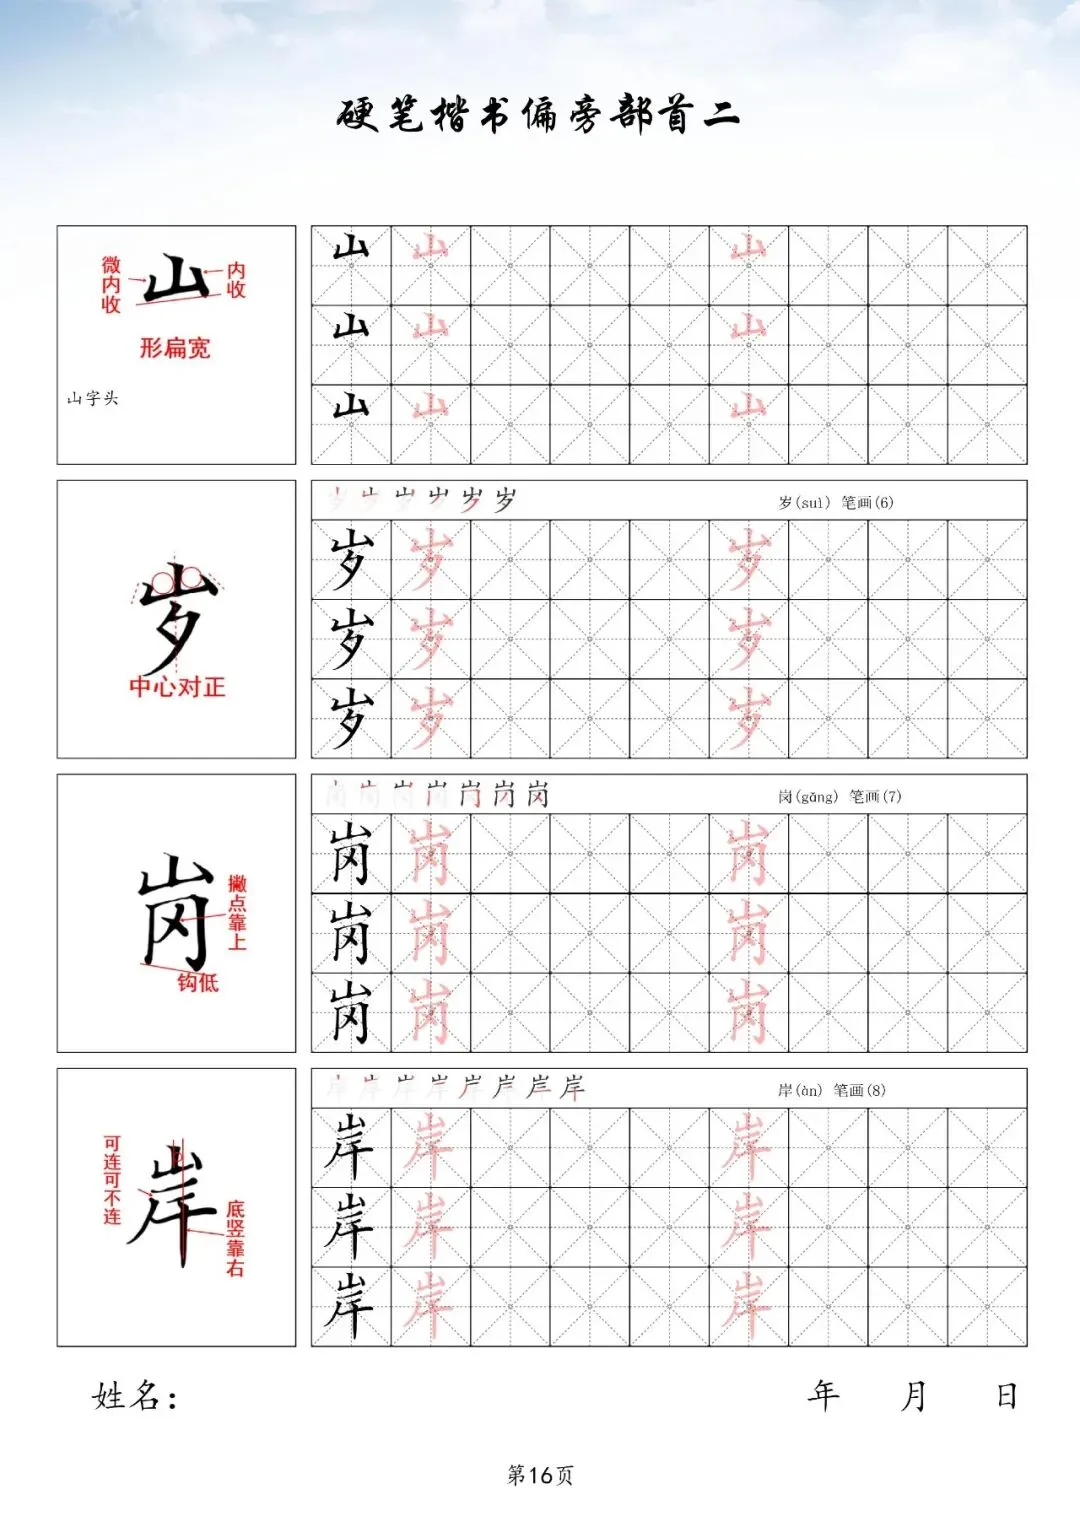 硬笔楷书偏旁部首二
微内收
山
内收
形扁宽
山字头
山 山 山
山 山 山
山 山 山
岁 岁 岁 岁 岁 岁
岁(suì) 笔画(6)
岁
中心对正
岁 岁 岁
岁 岁 岁
岁 岁 岁
岗 岗 岗 岗 岗 岗 岗
岗(gǎng) 笔画(7)
岗
撇点靠上
钩低
岗 岗 岗
岗 岗 岗
岗 岗 岗
岸 岸 岸 岸 岸 岸 岸 岸
岸(àn) 笔画(8)
可连可不连
岸
底竖靠右
岸 岸 岸
岸 岸 岸
岸 岸 岸
姓名：
年 月 日
第16页